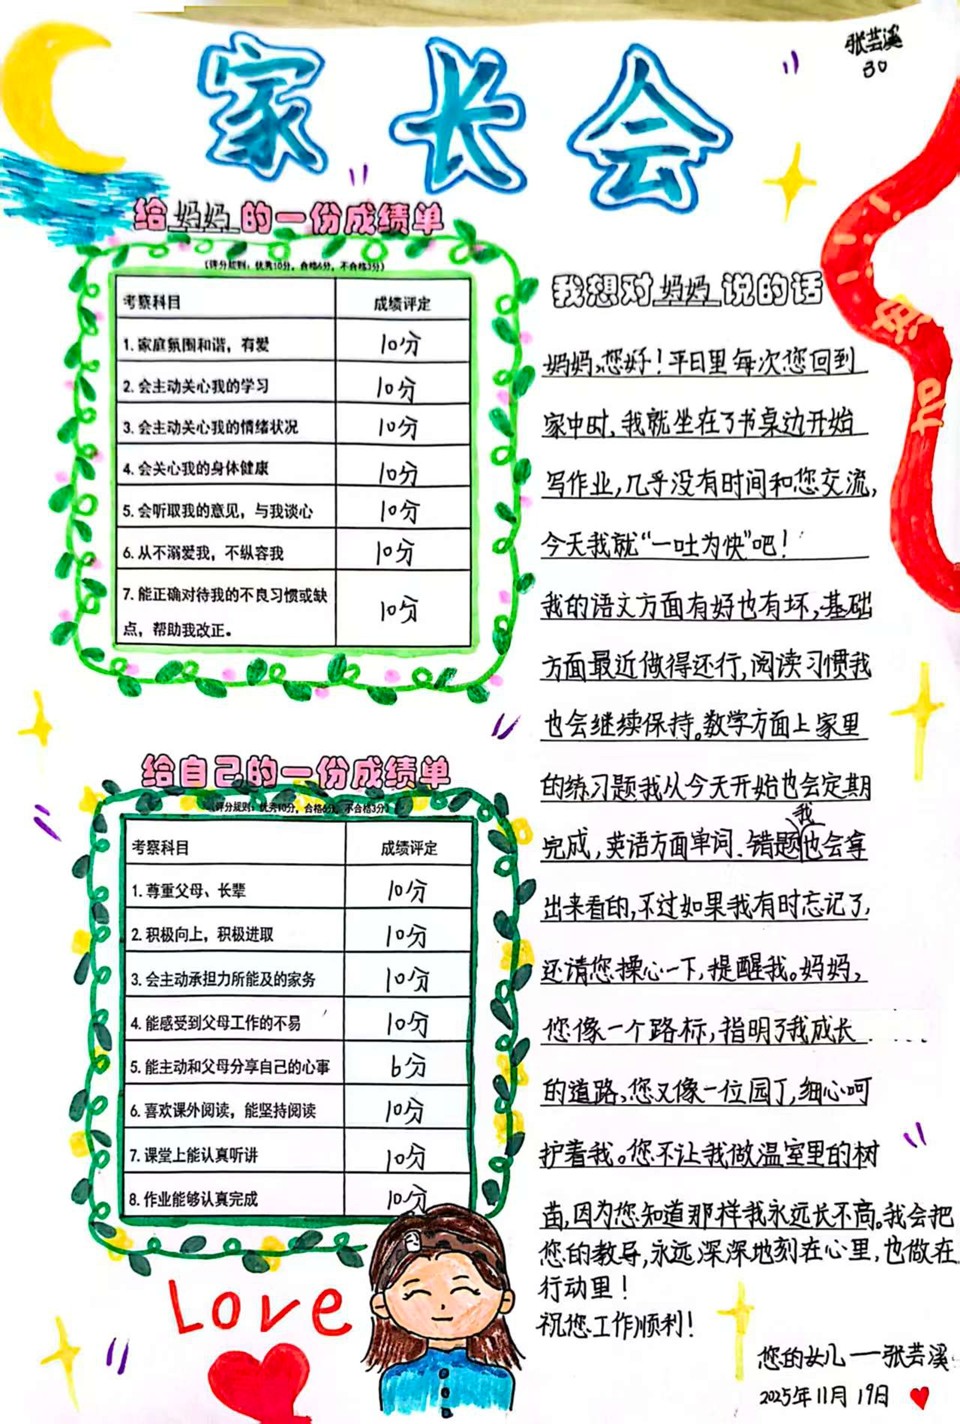 张芸溪
30
家长会
给妈妈的一份成绩单
(评分规则:优秀10分,合格6分,不合格3分)
考察科目 成绩评定
1.家庭氛围和谐,有爱 10分
2.会主动关心我的学习 10分
3.会主动关心我的情绪状况 10分
4.会关心我的身体健康 10分
5.会听取我的意见,与我谈心 10分
6.从不溺爱我,不纵容我 10分
7.能正确对待我的不良习惯或缺
点,帮助我改正。 10分
给自己的一份成绩单
(评分规则:优秀10分,合格6分,不合格3分)
考察科目 成绩评定
1.尊重父母、长辈 10分
2.积极向上,积极进取 10分
3.会主动承担力所能及的家务 10分
4.能感受到父母工作的不易 10分
5.能主动和父母分享自己的心事 6分
6.喜欢课外阅读,能坚持阅读 10分
7.课堂上能认真听讲 10分
8.作业能够认真完成 10分
Love
我想对妈妈说的话
妈妈,您好!平日里每次您回到
家中时,我就坐在了书桌边开始
写作业,几乎没有时间和您交流,
今天我就“一吐为快”吧!
我的语文方面有好也有坏,基础
方面最近做得还行,阅读习惯我
也会继续保持。数学方面上家里
的练习题我从今天开始也会定期
完成,英语方面单词、错题我也会拿
出来看的,不过如果我有时忘记了,
还请您操心一下,提醒我。妈妈,
您像一个路标,指明了我成长
的道路,您又像一位园丁,细心呵
护着我。您不让我做温室里的树
苗,因为您知道那样我永远长不高。我会把
您的教导,永远深深地刻在心里,也做在
行动里!
祝您工作顺利!
您的女儿——张芸溪
2025年11月19日
加油